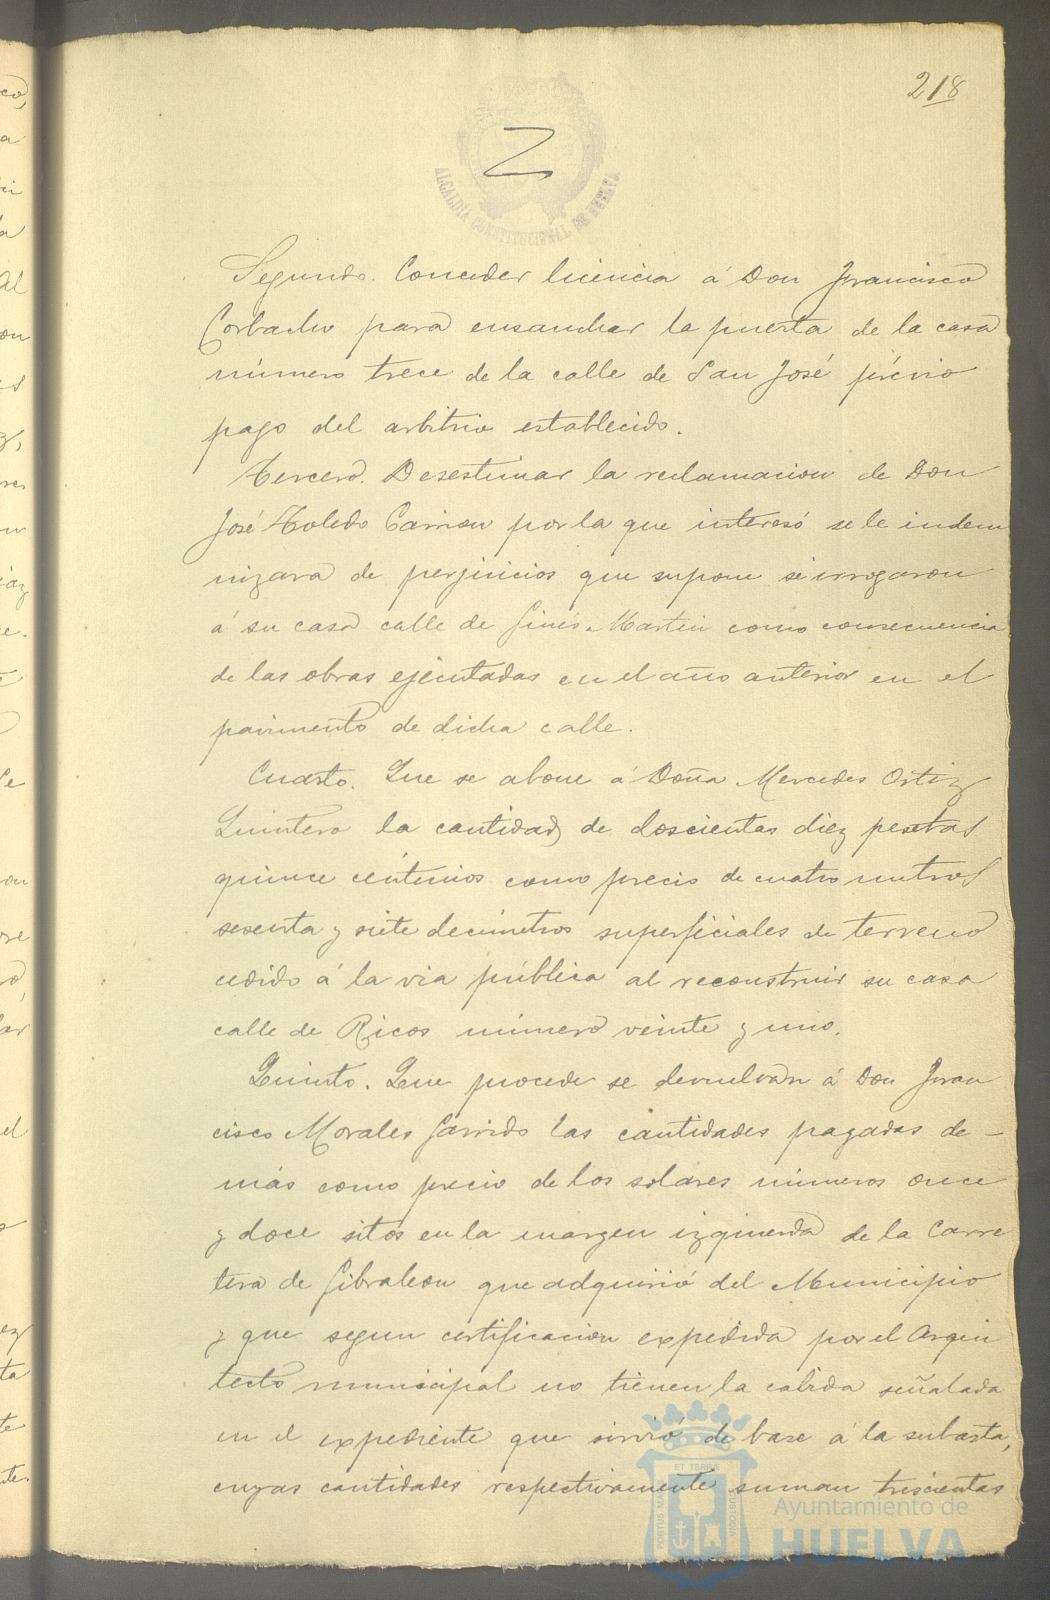 218
ALCALDÍA CONSTITUCIONAL DE HUELVA
Segundo. Conceder licencia á Don Francisco
Corbacho para ensanchar la puerta de la casa
número trece de la calle de San José prévio
pago del arbitrio establecido.
Tercero. Desestimar la reclamacion de Don
José Toledo Carrion por la que interesó se le indem
nizara de perjuicios que supone se irrogaron
á su casa calle de Ginés Martin como consecuencia
de las obras ejecutadas en el año anterior en el
pavimento de dicha calle.
Cuarto. Que se abone á Doña Mercedes Ortiz
Quintero la cantidad de doscientas diez pesetas
quince céntimos como precio de cuatro metros
sesenta y siete decímetros superficiales de terreno
cedido á la via pública al reconstruir su casa
calle de Ricos número veinte y uno.
Quinto. Que procede se devuelvan á Don Fran
cisco Morales Garrido las cantidades pagadas de-
más como precio de los solares números once
y doce sitos en la margen izquierda de la Carre
tera de Gibraleon que adquirió del Municipio
y que segun certificacion expedida por el Arqui
tecto municipal no tienen la cabida señalada
en el expediente que sirvió de base á la subasta,
cuyas cantidades respectivamente suman trescientas
Ayuntamiento de
HUELVA